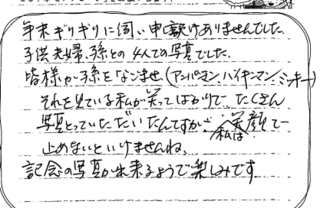 年末ギリギリに伺い申し訳けありませんでした。
子供夫婦、孫との4人での写真でした。
皆様が孫をなごませ(アンパンマン、バイキンマン、ミッキー)
それを見ている私が笑ってばかりで、たくさん
写真とっていただいたんですが… 私は笑顔で
止めないといけませんね。
記念の写真が出来るようで楽しみです